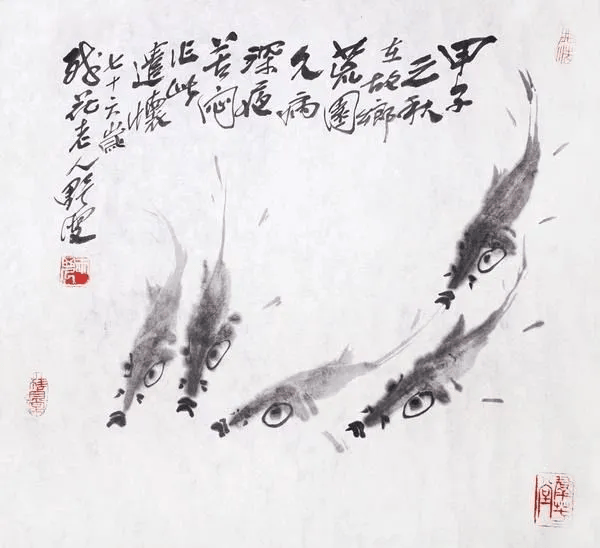 甲子
之秋
在故鄉
荒園
久病
深夜
苦悶
作此
遣懷
七十六歲
残花老人